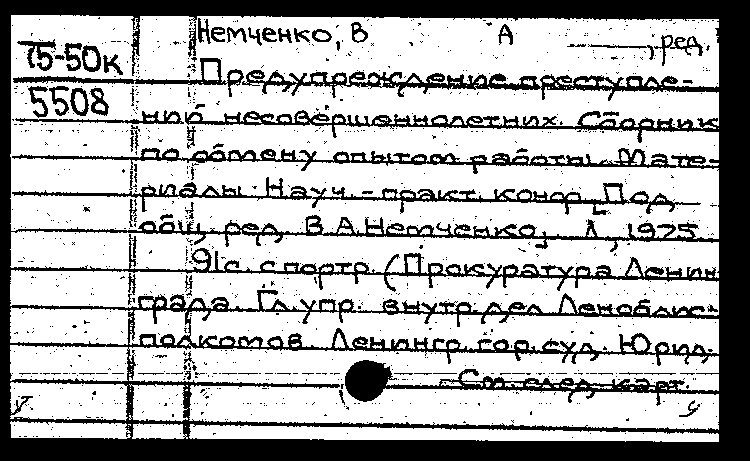 Немченко, В А ____, ред.
75-50к
Предупреждение преступле-
5508
ний несовершеннолетних. Сборник
по обмену опытом работы. Мате-
риалы Науч.-практ. конф. Под
общ. ред. В.А.Немченко, Л, 1975
91с. с портр. (Прокуратура Ленин
града. Гл. упр. внутр. дел Леноблис-
полкомов. Ленингр. гор. суд. Юрид.
См. след. карт.